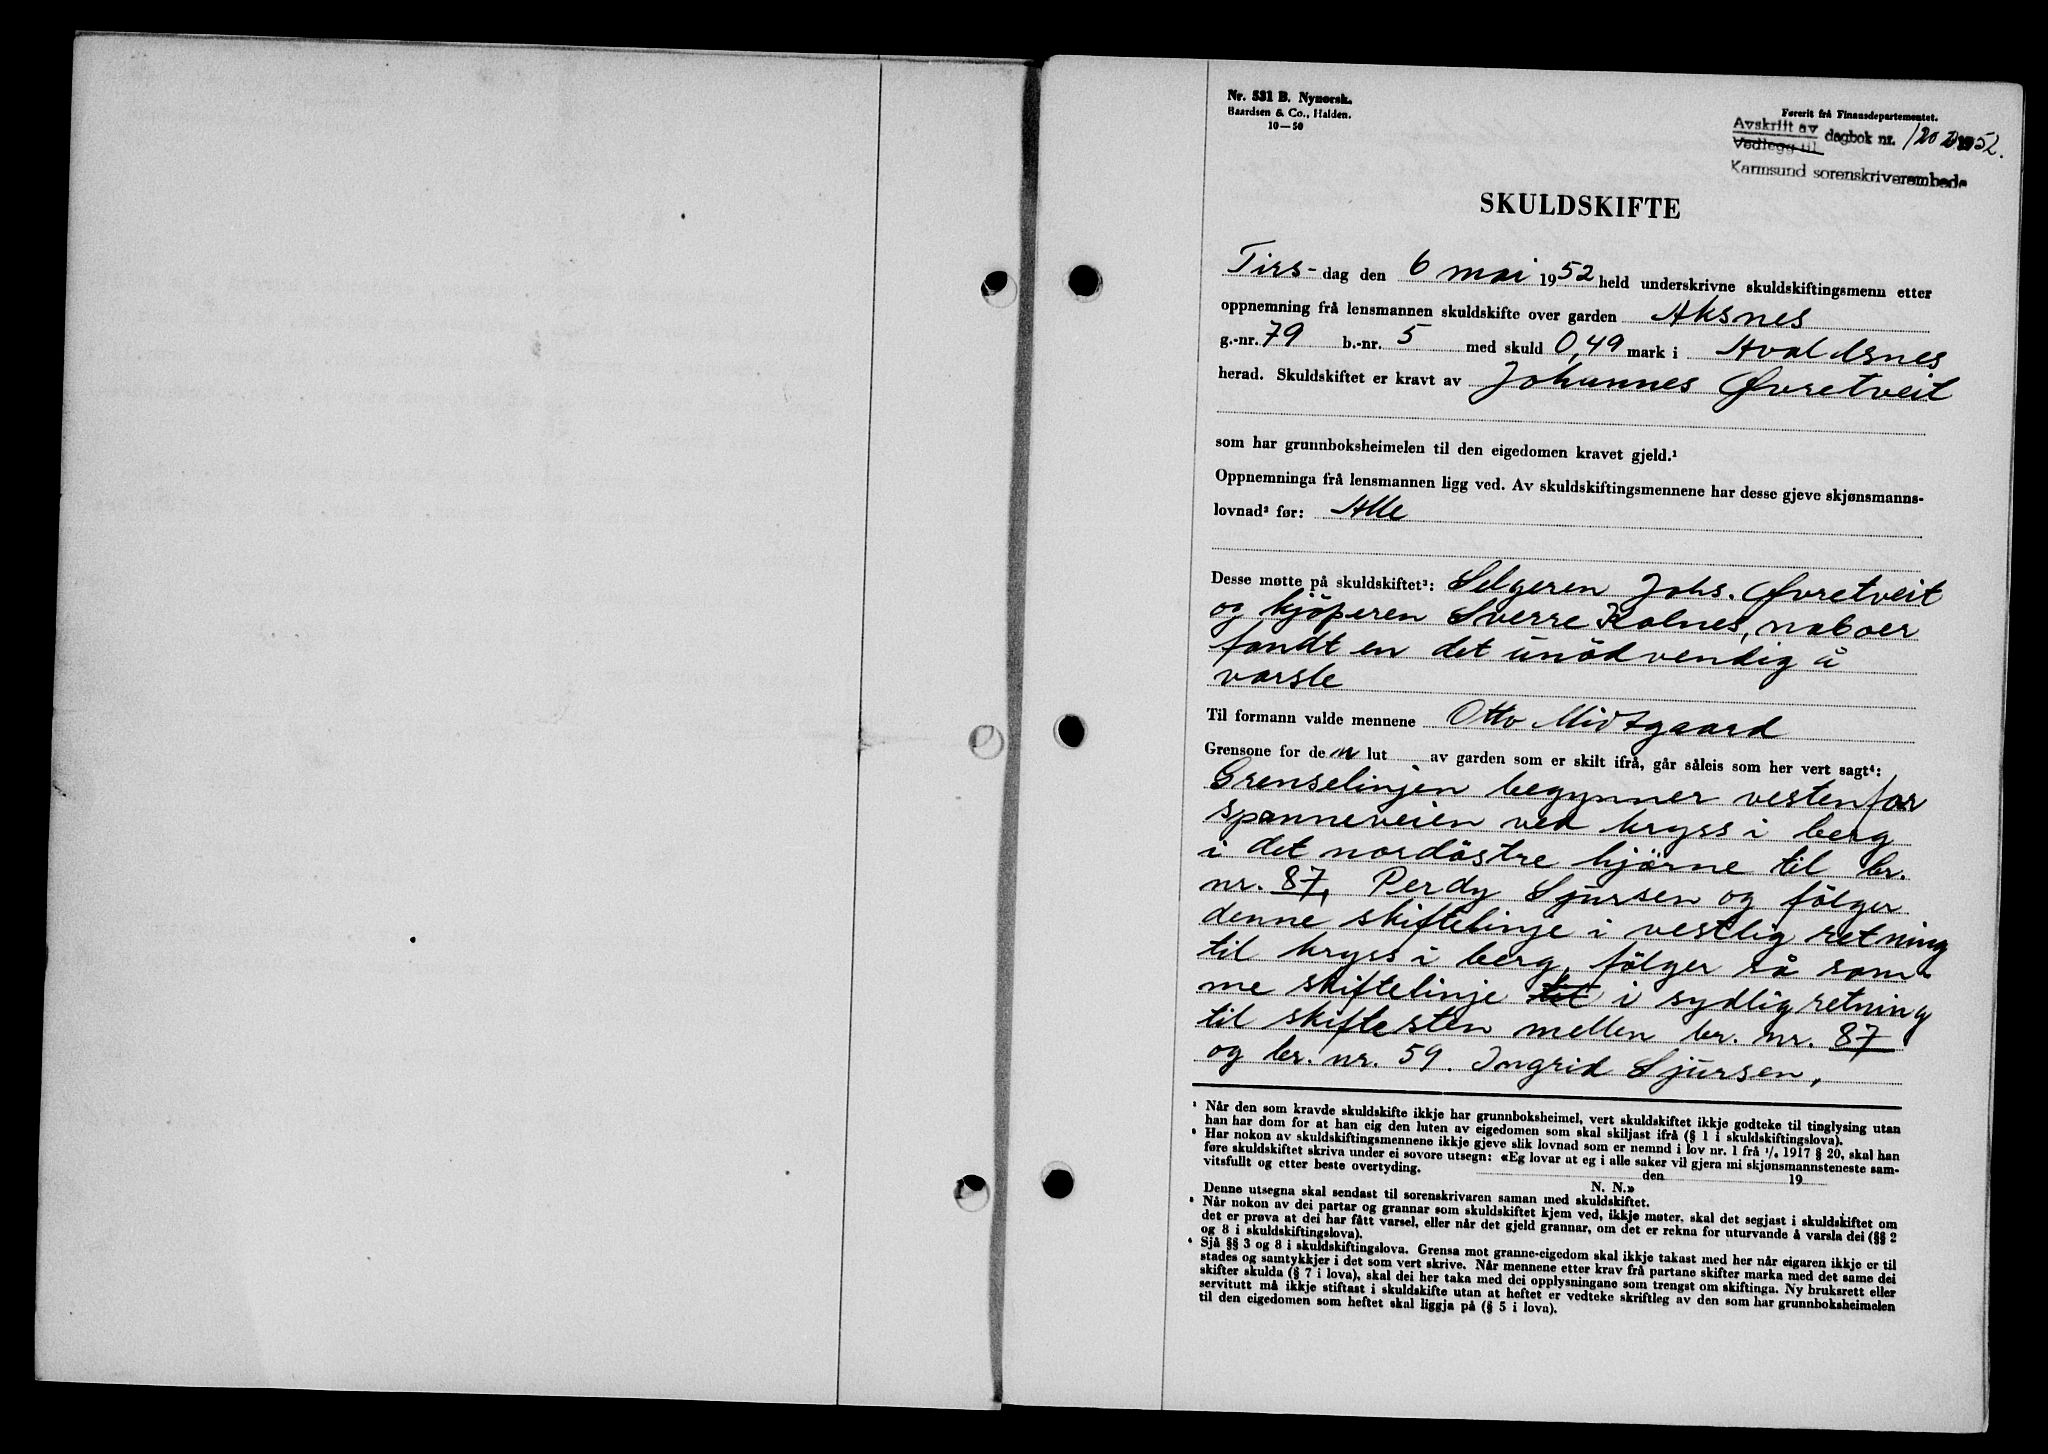 Nr. 531 B. Nynorsk.
Baardsen & Co., Halden.
10—50
Førerit frå Finansdepartementet.
Avskrift av
Vedlegg til dagbok nr. 1202 1952.
Karmsund sorenskriverembede
SKULDSKIFTE
Tirs- dag den 6 mai 1952 held underskrivne skuldskiftingsmenn etter
oppnemning frå lensmannen skuldskifte over garden Aksnes
g.-nr. 79 b.-nr. 5 med skuld 0,49 mark i Avaldsnes
herad. Skuldskiftet er kravt av Johannes Øvretveit
som har grunnboksheimelen til den eigedomen kravet gjeld.¹
Oppnemninga frå lensmannen ligg ved. Av skuldskiftingsmennene har desse gjeve skjønsmanns-
lovnad² før: Alle
Desse møtte på skuldskiftet³: Selgeren Johs. Øvretveit
og kjøperen Sverre Kolnes, naboer
fandt en det unödvendig å
varsle
Til formann valde mennene Otto Midtgaard
Grensone for den lut av garden som er skilt ifrå, går såleis som her vert sagt⁴:
Grenselinjen begynner vestenfor
spanneveien ved kryss i berg
i det nordöstre hjörne til br.
nr. 87, Perdy Sjursen og fölger
denne skiftelinje i vestlig retning
til kryss i berg, fölger så sam-
me skiftelinje til i sydlig retning
til skiftesten mellen br. nr. 87
og br. nr. 59. Ingrid Sjursen,
¹ Når den som kravde skuldskifte ikkje har grunnboksheimel, vert skuldskiftet ikkje godteke til tinglysing utan
han har dom for at han eig den luten av eigedomen som skal skiljast ifrå (§ 1 i skuldskiftingslova).
² Har nokon av skuldskiftingsmennene ikkje gjeve slik lovnad som er nemnd i lov nr. 1 frå 1/6 1917 § 20, skal han
føre skuldskiftet skriva under ei sovore utsegn: «Eg lovar at eg i alle saker vil gjera mi skjønsmannsteneste sam-
vitsfullt og etter beste overtyding. den 19
N. N.»
Denne utsegna skal sendast til sorenskrivaren saman med skuldskiftet.
³ Når nokon av dei partar og grannar som skuldskiftet kjem ved, ikkje møter, skal det segjast i skuldskiftet om
det er prøva at dei har fått varsel, eller når det gjeld grannar, om det er rekna for uturvande å varsla dei (§§ 2
og 8 i skuldskiftingslova).
⁴ Sjå §§ 3 og 8 i skuldskiftingslova. Grensa mot granne-eigedom skal ikkje takast med her når eigaren ikkje er til
stades og samtykkjer i det som vert skrive. Når mennene etter krav frå partane skifter marka med det same dei
skifter skulda (§ 7 i lova), skal dei her taka med dei opplysningane som trengst om skiftinga. Ny bruksrett eller
servitutt må ikkje stiftast i skuldskifte utan at heftet er vedteke skriftleg av den som har grunnboksheimelen
til den eigedomen som heftet skal liggja på (§ 5 i lova).